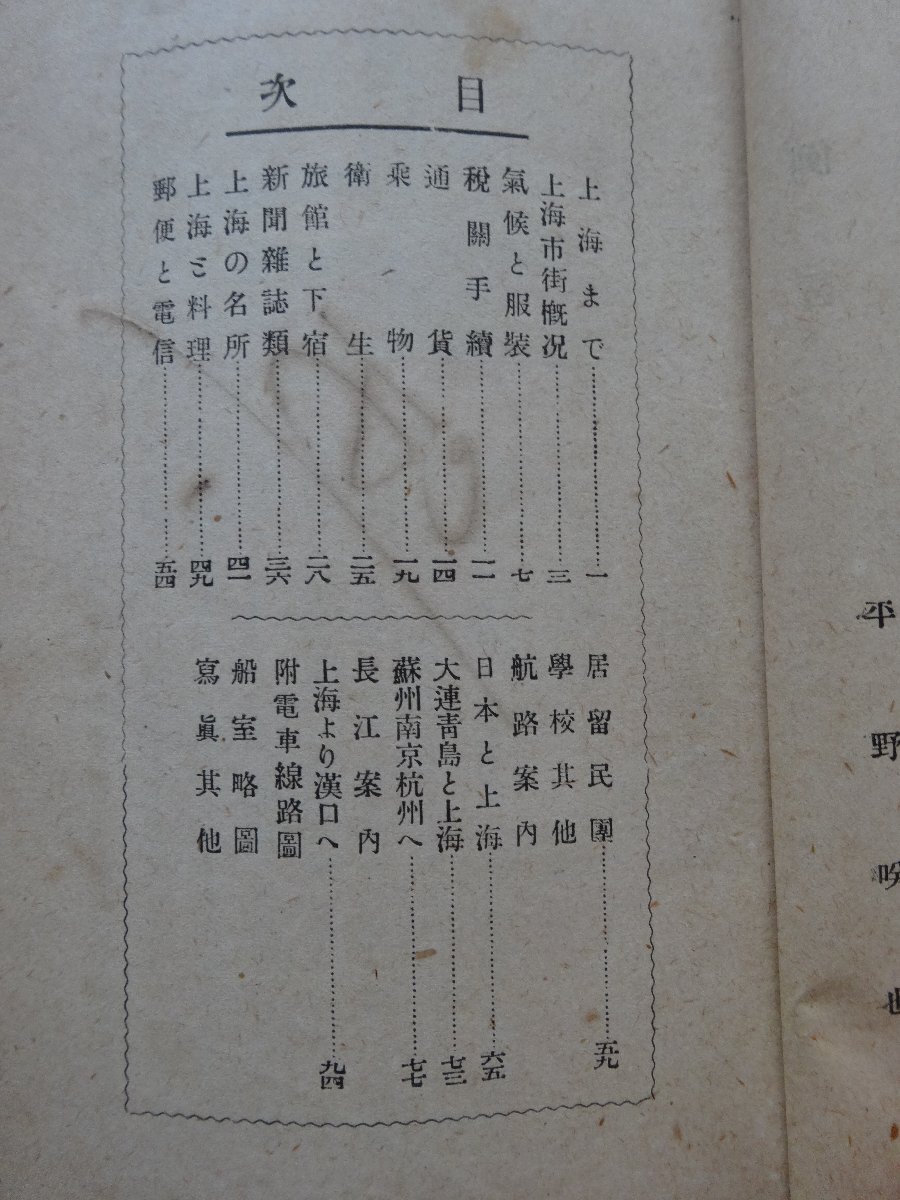 平野吟也
目次
上海まで一
上海市街概况三
氣候と服裝七
稅關手續一一
通貨一四
乘物一九
衛生二五
旅館と下宿二八
新聞雜誌類三六
上海の名所四一
上海と料理四九
郵便と電信五四
居留民團五九
學校其他
航路案內
日本と上海六五
大連靑島と上海七三
蘇州南京杭州へ七七
長江案內
上海より漢口へ九四
附電車線路圖
船室略圖
寫眞其他